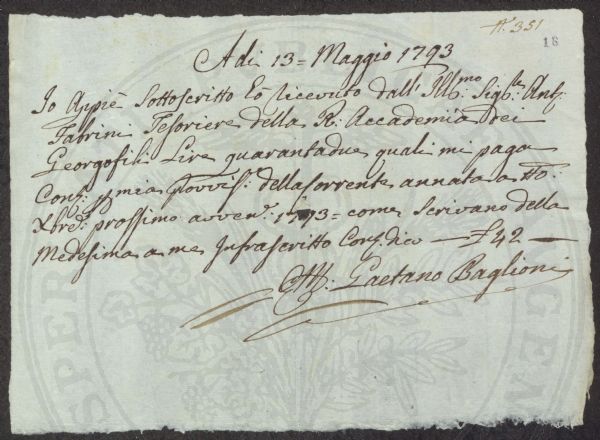 N.° 351
18
Adi 13 = Maggio 1793
Io Appiè Sottoscritto Ho ricevuto dall' Ill:mo Sig:re Ant:
Fabrini Tesoriere della R: Accademia dei
Georgofili Lire quarantadue quali mi paga
Cont: p mia Provvis: della Corrente annata a tto:
Xbre: prossimo avven: 1793 = come Scrivano della
Medesima a me Infrascritto Cont: dico — £ 42 —
Gaetano Baglioni
SPER
INGEM